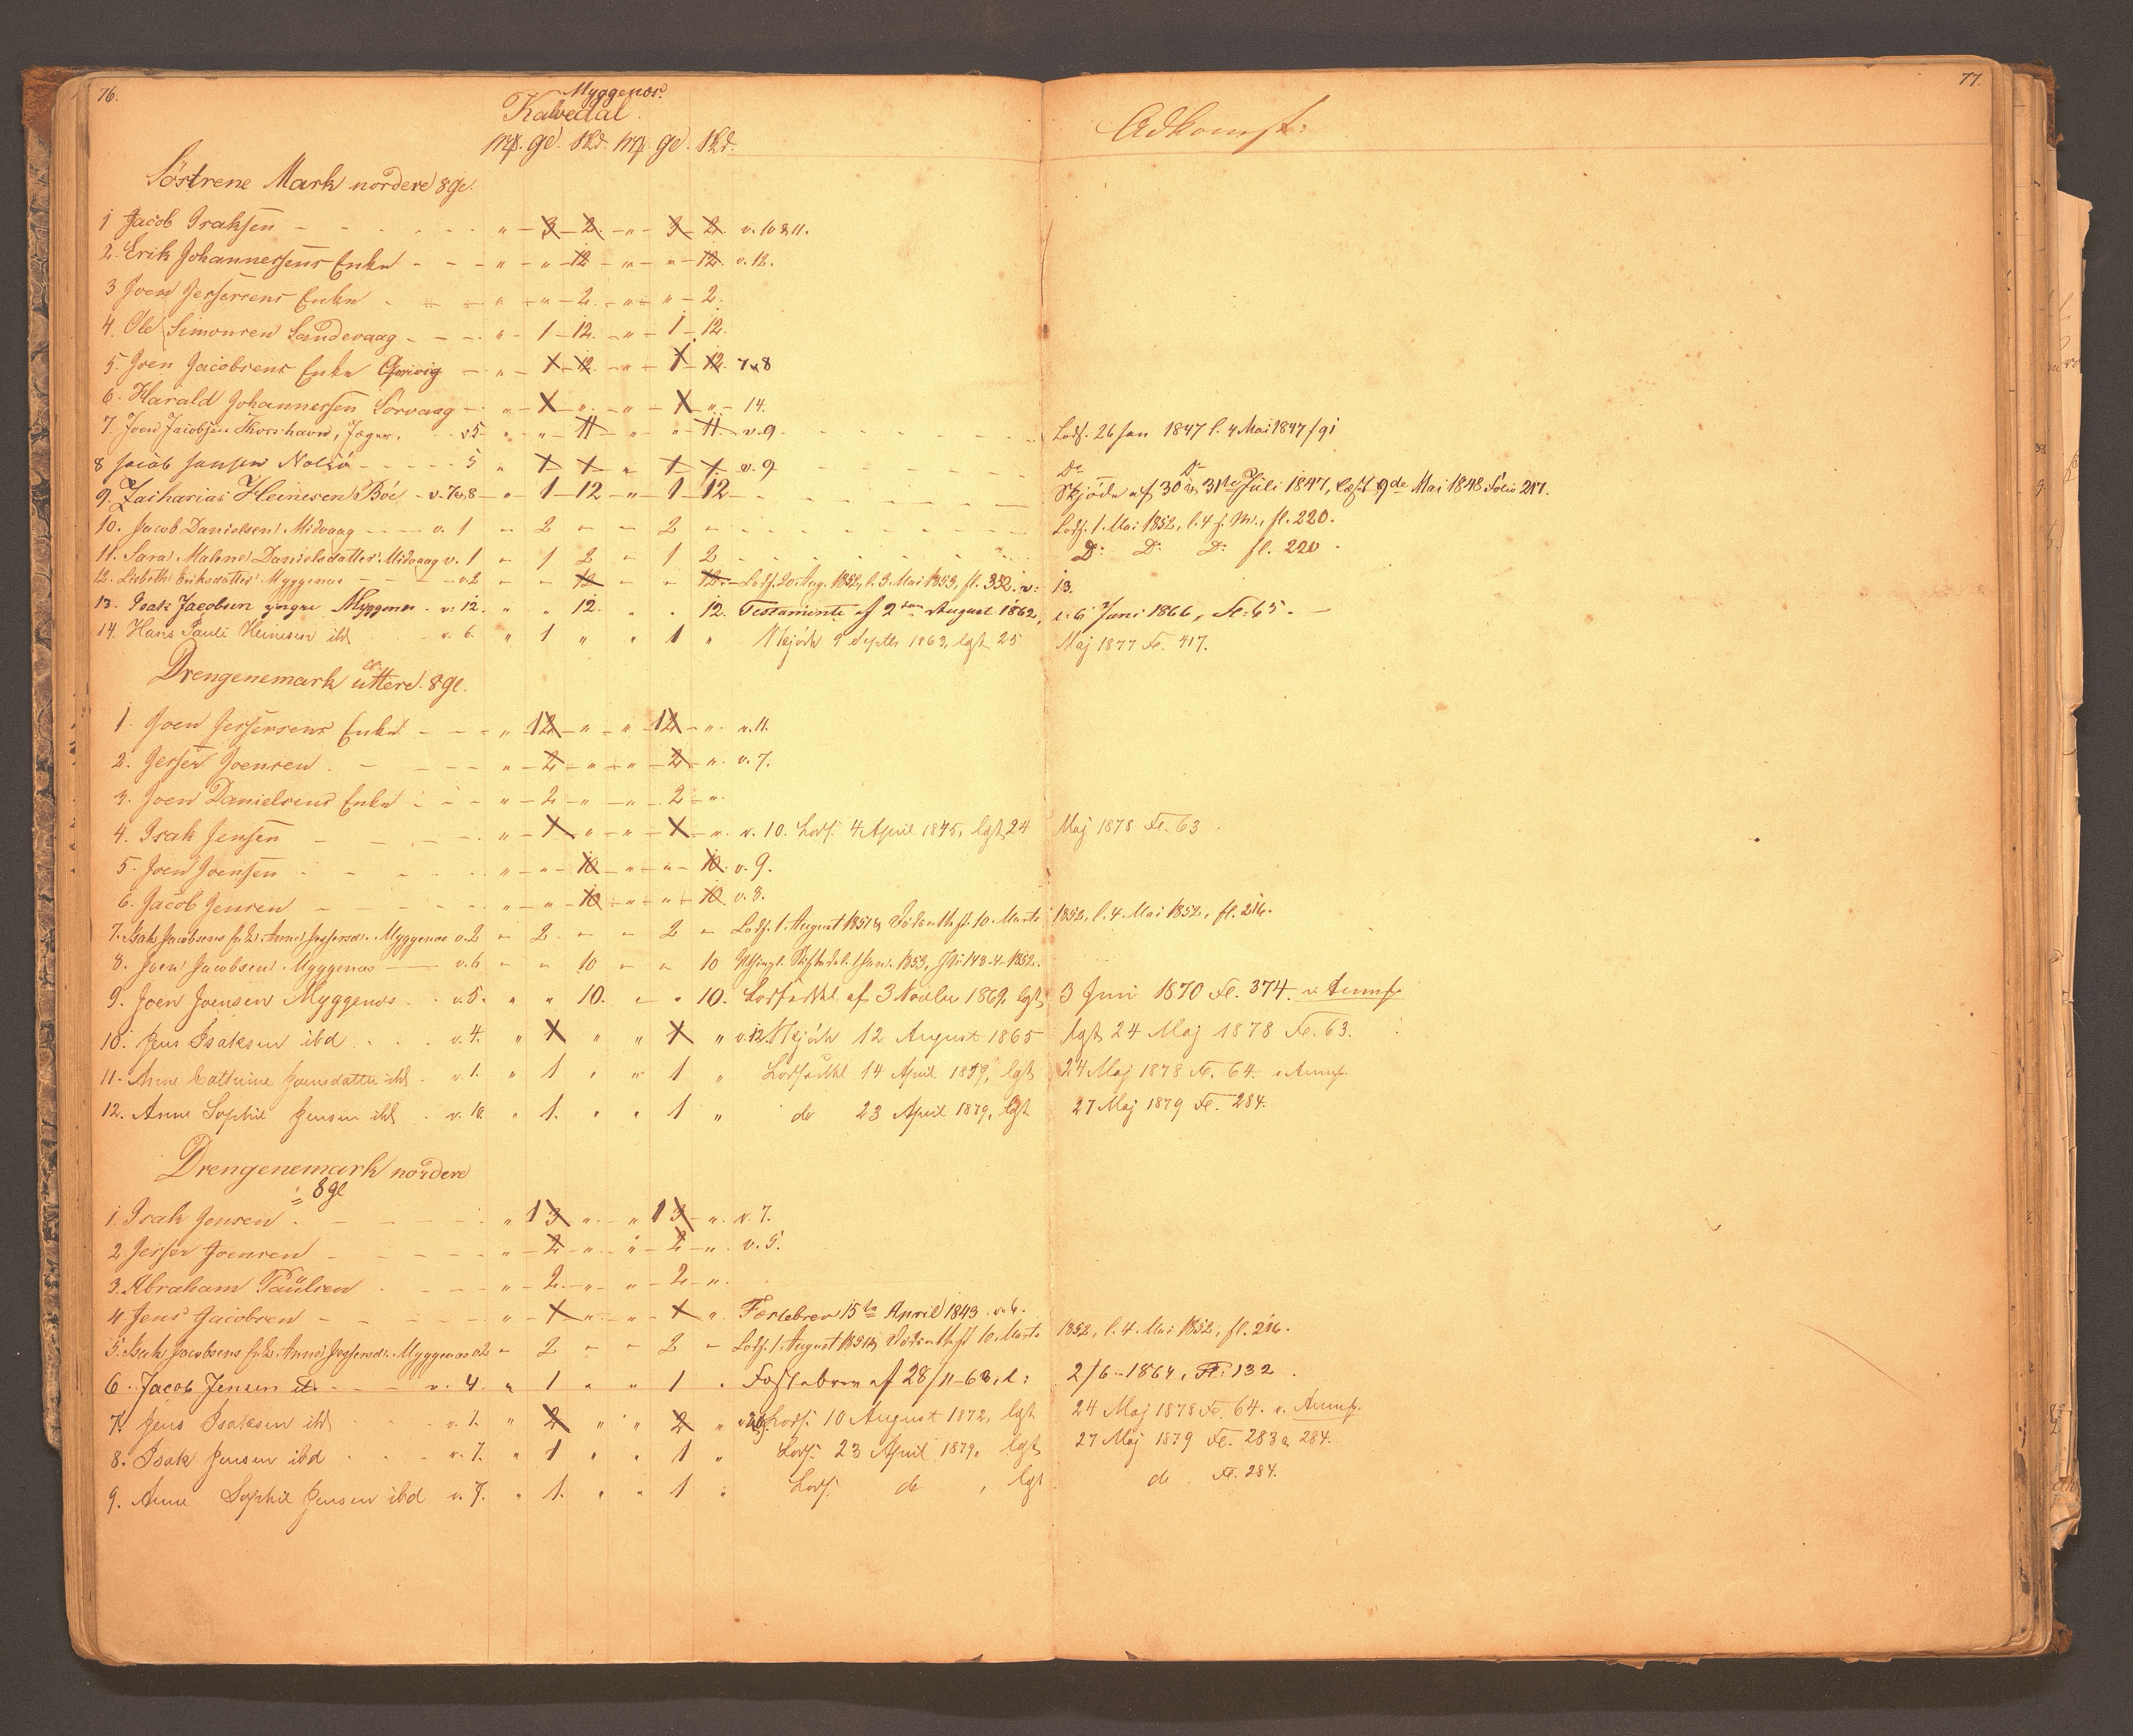 76.
Myggenæs.
Kalvedal.
Mk. gl. Skd. Mk. gl. Skd.
Adkomst:
77.
Söstrene Mark nordere 8 gl.
1 Jacob Isaksen - - - - „ - 3 - 2. - „ - 3 - 2. v. 10 & 11.
2. Erik Johannessens Enke - - - „ - „ - 12 - „ - „ - 12. v. 12.
3 Joen Jessesens Enke - - „ - „ - 2. - „ - „ - 2.
4. Ole Simonsen Sandevaag - - - „ - 1 - 12. - „ - 1 - 12.
5. Joen Jacobsens Enke - „ - 1 - 12. - „ - 1 - 12. 7 & 8
6. Harald Johannessen Sorvaag - „ - 1 - „ - „ - 1 - „ - 14.
7. Joen Jacobsen Thorshavn, Jæger. v 5 „ „ 11 „ „ 11. v. 9 - - - Lods. 26 Jan 1847 l. 4 Mai 1847/91
8 Jacob Jansen Nolsö - - - 5 „ 1 1 „ 1 1 v. 9 - - - Do Do
9. Zacharias Heinesen Böe - v. 7 & 8 - „ 1 - 12 - „ 1 - 12 - - - Skjöde af 30 & 31te Juli 1847, læst 9de Mai 1848 Folio 217.
10. Jacob Danielsen Midvaag - - v. 1 - 2 - - 2 - - - Lods. 1. Mai 1852, l. 4 s. M., fl. 220.
11. Sara Malene Danielsdatter Midvaag v. 1 - 1 2 - 1 2 - - - D: D: D: fl. 220.
12. Lisbeth Eriksdatter Myggenæs - - v. 2 - - 12 - - 12. - Lods. 20 Aug. 1852, l. 3. Mai 1853, fl. 352. v: 13.
13. Isak Jacobsen yngre Myggenæs. v. 12. „ „ 12. „ „ 12. Testamente af 2den August 1862, l: 6 Juni 1866, Fl: 65. -
14. Hans Pauli Heinesen ibd v. 6. „ 1 „ „ 1 „ Skjöde 9 Septbr 1863, lgst 25 Maj 1877 Fl. 417.
Drengenemark üttere 8 gl.
1. Joen Jessesens Enke - - - „ 12 „ „ 12 - „ v. 11.
2. Jesser Joensen. - - - „ - 2 - „ - „ - 2 - „. v. 7.
3. Joen Danielsens Enke - - - „ - 2 - „ - „ - 2 - „.
4. Isak Jensen - - - „ - 1 - „ - „ - 1 - „. v. 10. Lods. 4 April 1845, lgst 24 Maj 1878 Fl. 63.
5. Joen Joensen - - - „ - „ - 10 - „ - „ - 10. v. 9.
6. Jacob Jensen - - - „ - „ - 10 - „ - „ - 10. v. 8.
7. Isak Jacobsens Anne Jessersd. Myggenæs v. 2 - 2 - - 2 - Lods. 1. August 1851 & 10. Marts 1852, l. 4. Mai 1852, fl. 216.
8. Joen Jacobsen Myggenæs - v. 6 - - 10 - - 10 1 Jan. 1853, 148-4-1852.
9. Joen Joensen Myggenæs. v. 5. „ „ 10. „ „ 10. Lodseddel af 3 Novbr 1869, lgst 3 Juni 1870 Fl. 374. v. Anmk.
10. Jens Isaksen ibd . . . v. 4. „ 1 „ „ 1 „ v. 12. Skjöde 12 August 1865 lgst 24 Maj 1878 Fl. 63.
11. Anne Cathrine Joensdatter ibd. v. 1. „ 1 „ „ 1 „ Lodseddel 14 April 1859, lgst 24 Maj 1878 Fl. 64. v. Anmk.
12. Anne Sophie Jensen ibd . v. 10. „ 1. „ „ 1 „ do 23 April 1879, lgst 27 Maj 1879 Fl. 284.
Drengenemark nordere
8 gl
1. Isak Jensen. - - - „ 13 „ „ 13 - „. v. 7.
2. Jesser Joensen - - - „ - 2 - „ „ - 2 - „. v. 5.
3. Abraham Paülsen - - „ - 2. - „ - „ - 2 - „.
4. Jens Jacobsen - - - „ - 1 - „ - „ - 1 „ Fæstebrev 15de April 1843. v. 6.
5. Isak Jacobsens Anne Jessersd. Myggenæs v. 2 - 2 - - 2 - Lods. 1. August 1851 & 10. Marts 1852, l. 4. Mai 1852, fl. 216.
6. Jacob Jensen ib. - - - v. 4. „ 1 „ „ 1 „ Fæstebrev af 28/11-63, l: 2/6-1864, Fl: 132.
7. Jens Isaksen ibd v. 1. „ 2 „ „ 2 „ Lods. 10 August 1872, lgst 24 Maj 1878 Fl. 64. v. Anmk.
8. Isak Jensen ibd . . - v. 7. „ 1 „ „ 1 „ Lods. 23 April 1879, lgst 27 Maj 1879 Fl. 283 & 284.
9. Anne Sophie Jensen ibd v. 7. „ 1. „ „ 1 „ Lods. do , lgst do Fl. 284.